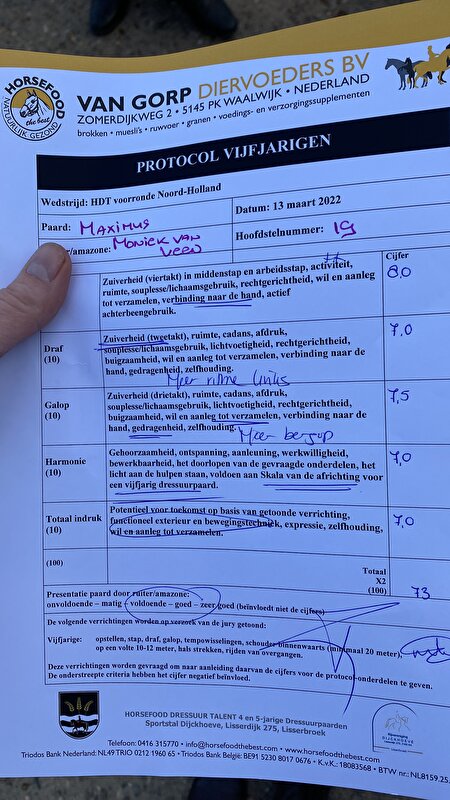 HORSEFOOD
the best
NATUURLIJK GEZOND
VAN GORP DIERVOEDERS BV
ZOMERDIJKWEG 2 • 5145 PK WAALWIJK • NEDERLAND
brokken • muesli's • ruwvoer • granen • voedings- en verzorgingssupplementen
PROTOCOL VIJFJARIGEN
Wedstrijd: HDT voorronde Noord-Holland
Paard: MAXIMUS
Datum: 13 maart 2022
er/amazone: MONIEK VAN VEEN
Hoofdstelnummer: 19
Cijfer
Zuiverheid (viertakt) in middenstap en arbeidsstap, activiteit,
ruimte, souplesse/lichaamsgebruik, rechtgerichtheid, wil en aanleg
tot verzamelen, verbinding naar de hand, actief
achterbeengebruik.
8,0
Draf
(10)
Zuiverheid (tweetakt), ruimte, cadans, afdruk,
souplesse/lichaamsgebruik, lichtvoetigheid, rechtgerichtheid,
buigzaamheid, wil en aanleg tot verzamelen, verbinding naar de
hand, gedragenheid, zelfhouding.
Meer ritme links
7,0
Galop
(10)
Zuiverheid (drietakt), ruimte, cadans, afdruk,
souplesse/lichaamsgebruik, lichtvoetigheid, rechtgerichtheid,
buigzaamheid, wil en aanleg tot verzamelen, verbinding naar de
hand, gedragenheid, zelfhouding.
Meer bergop
7,5
Harmonie
(10)
Gehoorzaamheid, ontspanning, aanleuning, werkwilligheid,
bewerkbaarheid, het doorlopen van de gevraagde onderdelen, het
licht aan de hulpen staan, voldoen aan Skala van de africhting voor
een vijfjarig dressuurpaard.
7,0
Totaal indruk
(10)
Potentieel voor toekomst op basis van getoonde verrichting,
functioneel exterieur en bewegingstechniek, expressie, zelfhouding,
wil en aanleg tot verzamelen.
7,0
(100)
Totaal
X2
(100)
73
Presentatie paard door ruiter/amazone:
onvoldoende – matig – voldoende – goed – zeer goed (beïnvloedt niet de cijfers)
De volgende verrichtingen worden op verzoek van de jury getoond:
Vijfjarige: opstellen, stap, draf, galop, tempowisselingen, schouderbinnenwaarts (minimaal 20 meter),
op een volte 10-12 meter, hals strekken, rijden van overgangen.
Deze verrichtingen worden gevraagd om naar aanleiding daarvan de cijfers voor de protocol-onderdelen te geven.
De onderstreepte criteria hebben het cijfer negatief beïnvloed.
HORSEFOOD DRESSUUR TALENT 4 en 5-jarige Dressuurpaarden
Sportstal Dijckhoeve, Lisserdijk 275, Lisserbroek
DIJCKHOEVE
Telefoon: 0416 315770 • info@horsefoodthebest.com • www.horsefoodthebest.com
Triodos Bank Nederland: NL49 TRIO 0212 1960 65 • Triodos Bank België: BE91 5230 8017 0676 • K.v.K.: 18083568 • BTW nr.: NL8159.25.